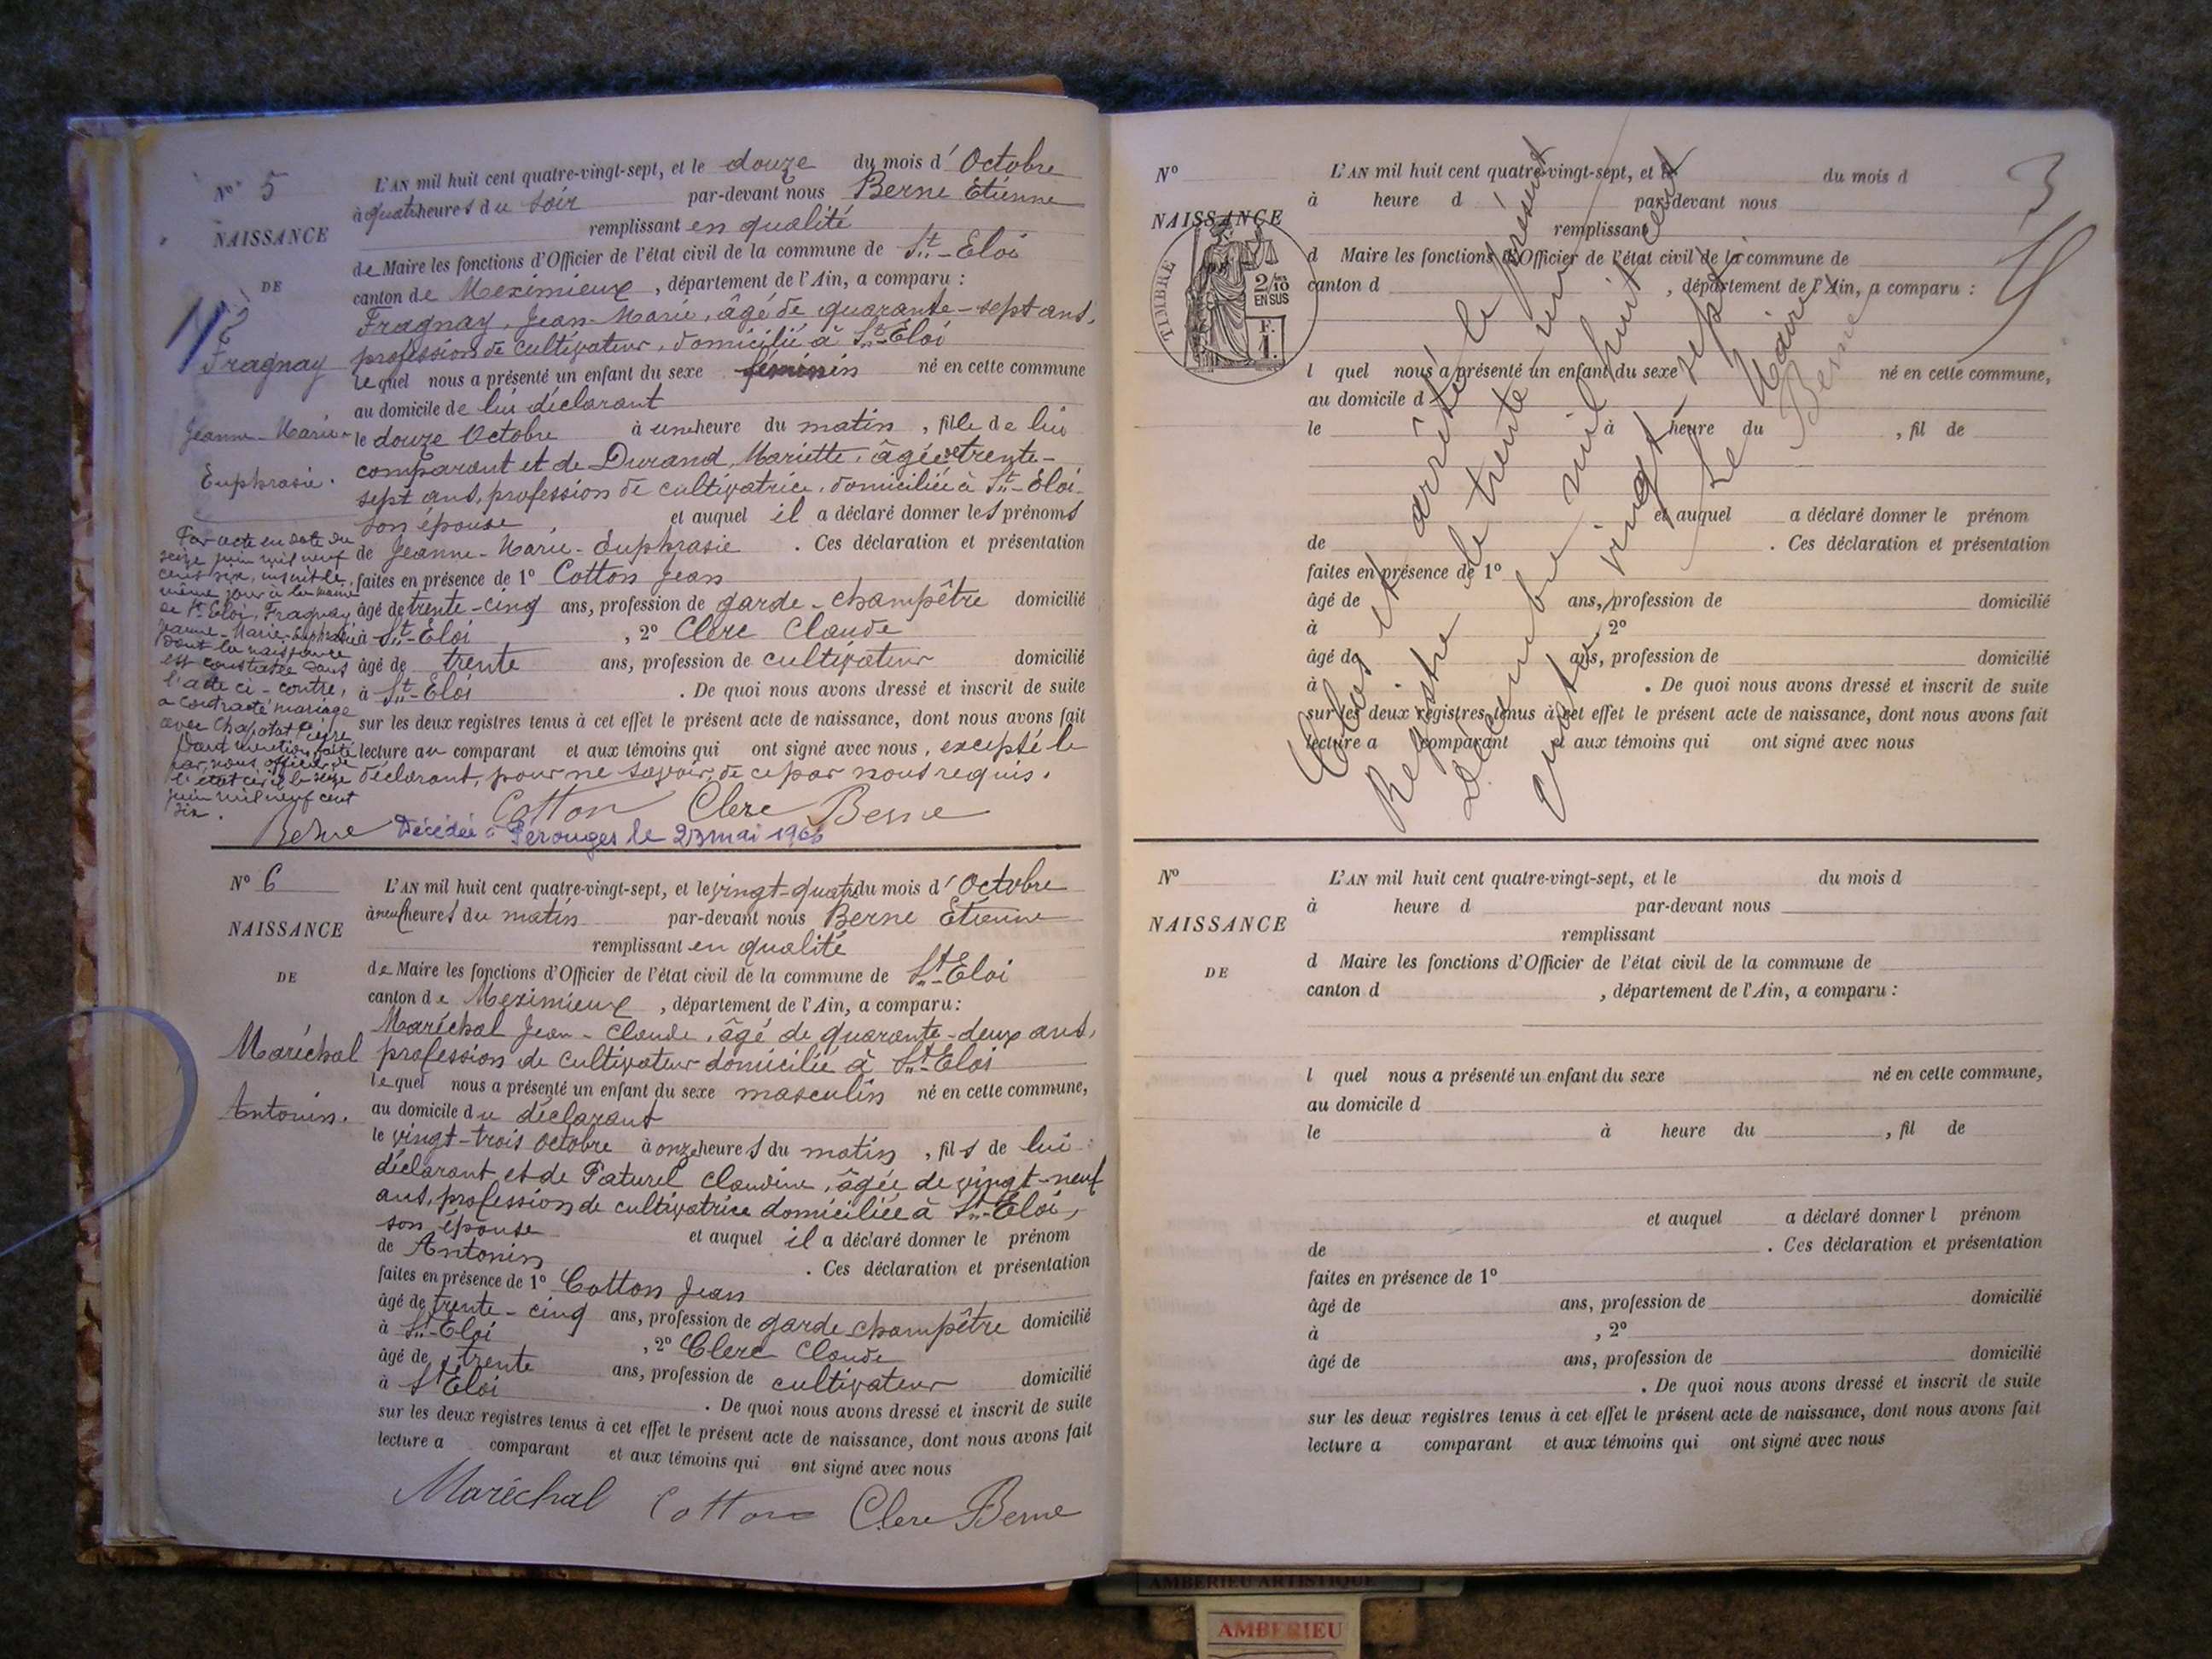 N° 5
NAISSANCE
DE
Fragnay
Jeanne-Marie-
Euphrasie.
Par acte en date du
seize juin mil neuf
cent six, inscrit le
même jour à la mairie
de St Eloi, Fragnay
Jeanne-Marie-Euphrasie
dont la naissance
est constatée dans
l'acte ci-contre,
a contracté mariage
avec Chapotat
Dont mention faite
par nous officier de
l'état civil le seize
juin mil neuf cent
six.
Berne
L'AN mil huit cent quatre-vingt-sept, et le douze du mois d'Octobre
à quatre heures du soir par-devant nous Berne Etienne
remplissant en qualité
de Maire les fonctions d'Officier de l'état civil de la commune de St-Eloi
canton de Meximieux, département de l'Ain, a comparu :
Fragnay, Jean-Marie, âgé de quarante-sept ans,
profession de cultivateur, domicilié à St-Eloi
lequel nous a présenté un enfant du sexe féminin né en cette commune
au domicile de lui déclarant
le douze Octobre à une heure du matin, fille de lui
comparant et de Durand, Mariette, âgée de trente-
sept ans, profession de cultivatrice, domiciliée à St-Eloi
son épouse et auquel il a déclaré donner les prénoms
de Jeanne-Marie-Euphrasie. Ces déclaration et présentation
faites en présence de 1° Cotton Jean
âgé de trente-cinq ans, profession de garde-champêtre domicilié
à St-Eloi, 2° Clerc Claude
âgé de trente ans, profession de cultivateur domicilié
à St-Eloi. De quoi nous avons dressé et inscrit de suite
sur les deux registres tenus à cet effet le présent acte de naissance, dont nous avons fait
lecture au comparant et aux témoins qui ont signé avec nous, excepté le
déclarant, pour ne savoir, de ce par nous requis.
Cotton Clerc Berne
Décédée à Pérouges le 23 mai 1966
N° 6
NAISSANCE
DE
Maréchal
Antonin.
L'AN mil huit cent quatre-vingt-sept, et le vingt-quatre du mois d'Octobre
à neuf heures du matin par-devant nous Berne Etienne
remplissant en qualité
de Maire les fonctions d'Officier de l'état civil de la commune de St-Eloi
canton de Meximieux, département de l'Ain, a comparu :
Maréchal Jean-Claude, âgé de quarante-deux ans,
profession de cultivateur domicilié à St-Eloi
lequel nous a présenté un enfant du sexe masculin né en cette commune,
au domicile du déclarant
le vingt-trois octobre à onze heures du matin, fils de lui
déclarant et de Paturel Claudine, âgée de vingt-neuf
ans, profession de cultivatrice domiciliée à St-Eloi,
son épouse et auquel il a déclaré donner le prénom
de Antonin. Ces déclaration et présentation
faites en présence de 1° Cotton Jean
âgé de trente-cinq ans, profession de garde-champêtre domicilié
à St-Eloi, 2° Clerc Claude
âgé de trente ans, profession de cultivateur domicilié
à St Eloi. De quoi nous avons dressé et inscrit de suite
sur les deux registres tenus à cet effet le présent acte de naissance, dont nous avons fait
lecture a comparant et aux témoins qui ont signé avec nous
Maréchal Cotton Clerc Berne
N°
NAISSANCE
TIMBRE
2/10 EN SUS
F. 1.
3
L'AN mil huit cent quatre-vingt-sept, et le du mois d
à heure d par-devant nous
remplissant
d Maire les fonctions d'Officier de l'état civil de la commune de
canton d , département de l'Ain, a comparu :
l quel nous a présenté un enfant du sexe né en cette commune,
au domicile d
le à heure du , fil de
et auquel a déclaré donner le prénom
de . Ces déclaration et présentation
faites en présence de 1°
âgé de ans, profession de domicilié
à , 2°
âgé de ans, profession de domicilié
à . De quoi nous avons dressé et inscrit de suite
sur les deux registres tenus à cet effet le présent acte de naissance, dont nous avons fait
lecture a comparant et aux témoins qui ont signé avec nous
Clos et arrêté le présent
Registre le trente un
Décembre mil huit cent
quatre vingt sept
Le Maire
Berne
N°
NAISSANCE
DE
L'AN mil huit cent quatre-vingt-sept, et le du mois d
à heure d par-devant nous
remplissant
d Maire les fonctions d'Officier de l'état civil de la commune de
canton d , département de l'Ain, a comparu :
l quel nous a présenté un enfant du sexe né en cette commune,
au domicile d
le à heure du , fil de
et auquel a déclaré donner l prénom
de . Ces déclaration et présentation
faites en présence de 1°
âgé de ans, profession de domicilié
à , 2°
âgé de ans, profession de domicilié
. De quoi nous avons dressé et inscrit de suite
sur les deux registres tenus à cet effet le présent acte de naissance, dont nous avons fait
lecture a comparant et aux témoins qui ont signé avec nous
AMBERIEU ARTISTIQUE
AMBERIEU